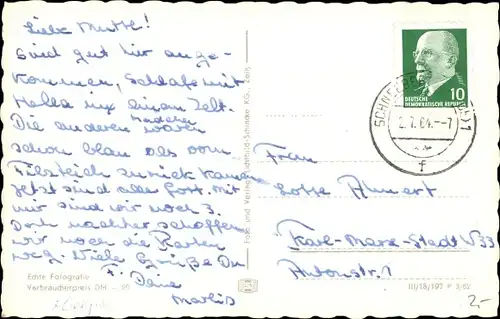 Liebe Mutti!
Sind gut hier ange-
kommen, Schlafe mit
Hella in einem Zelt.
Die anderen Mädchen waren
schon blau als vom
Filzteich zurück kamen
Jetzt sind alle fort. Mit
mir sind wir noch 3.
Doch nachher schaffen
wir noch die Karten
weg. Viele Grüße Du
Deine
Marlis
Echte Fotografie
Verbraucherpreis DM
Foto und Verlag
KG.,
10
DEUTSCHE
DEMOKRATISCHE REPUBLIK
SCHNEEBERG
2.7.64.-7
f
Frau
Lotte Ahnert
Karl-Marx-Stadt W33
Antonstr. 1
III/18/197 P 3/62
2,-